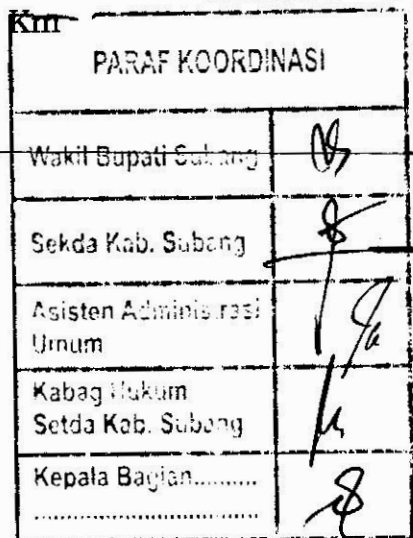 Km
PARAF KOORDINASI
Wakil Bupati Subang
Sekda Kab. Subang
Asisten Administrasi
Umum
Kabag Hukum
Setda Kab. Subang
Kepala Bagian..........
..............................